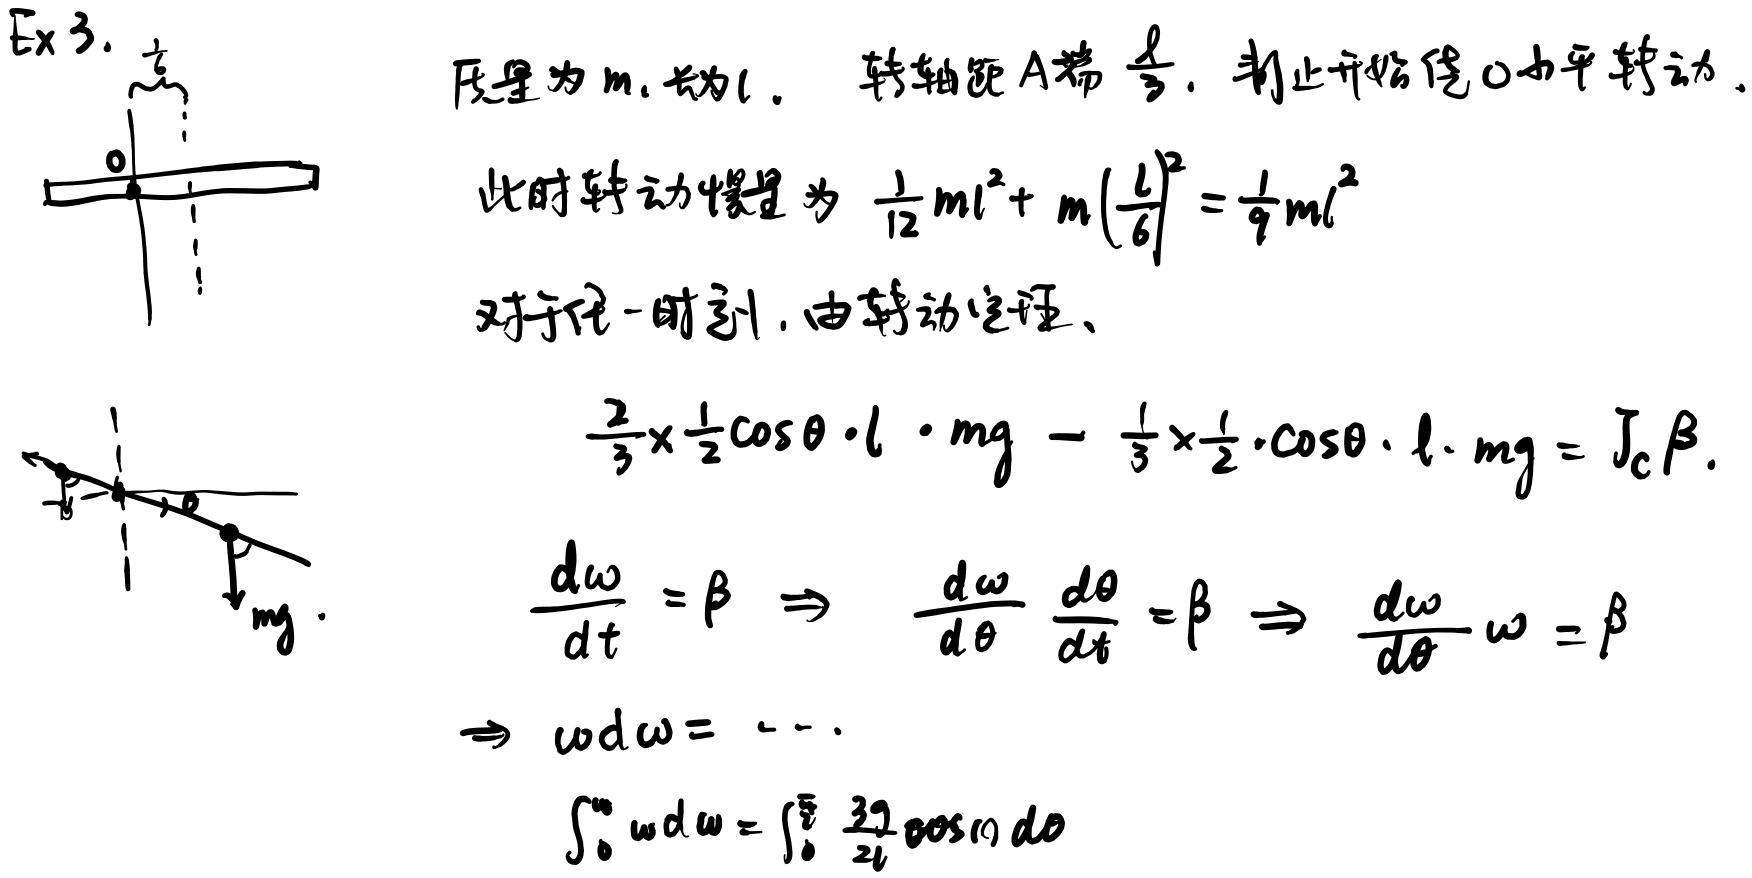 Ex 3.
l/6
O
质量为 m. 长为 l. 转轴距 A端 l/3. 静止开始绕 O 水平转动.
此时转动惯量为 1/12 ml² + m(l/6)² = 1/9 ml²
对于任一时刻. 由转动定理、
2/3 × 1/2 cosθ · l · mg - 1/3 × 1/2 · cosθ · l · mg = J_C β.
θ
mg.
dω/dt = β ⇒ dω/dθ dθ/dt = β ⇒ dω/dθ ω = β
⇒ ωdω = ....
∫₀^ω ωdω = ∫₀^(π/2) 3g/2l cosθ dθ